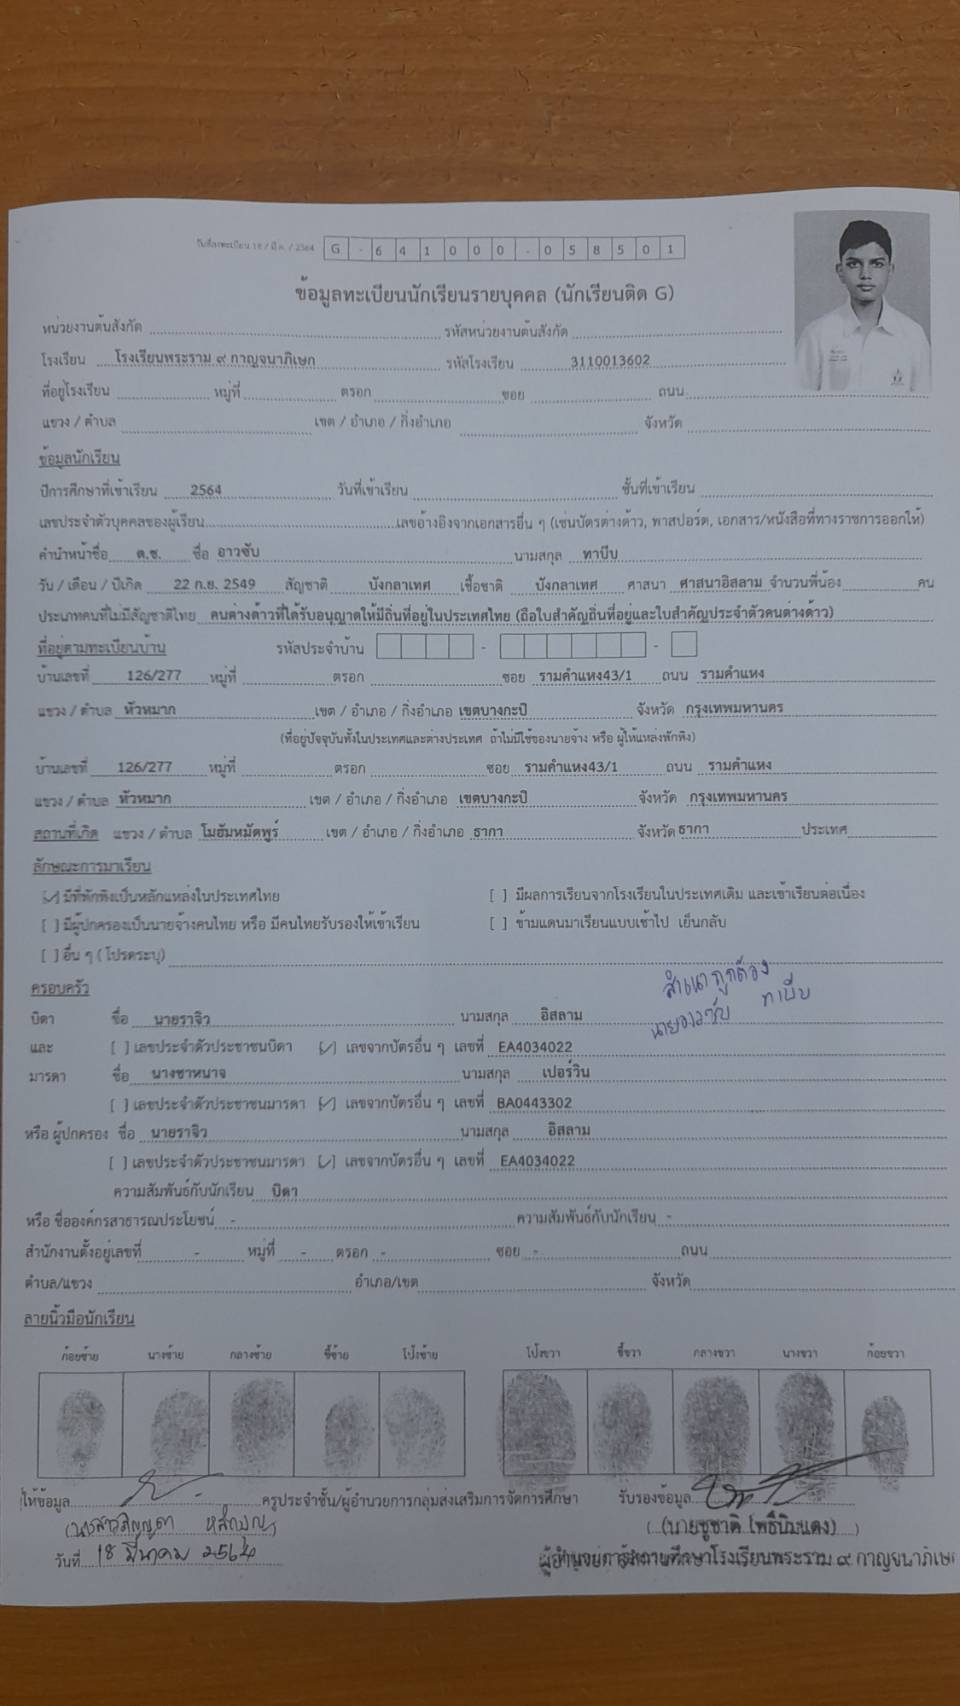 วันที่ลงทะเบียน 18 / มี.ค. / 2564 G - 6 4 1 0 0 0 - 0 5 8 5 0 1
ข้อมูลทะเบียนนักเรียนรายบุคคล (นักเรียนติด G)
หน่วยงานต้นสังกัด รหัสหน่วยงานต้นสังกัด
โรงเรียน โรงเรียนพระราม ๙ กาญจนาภิเษก รหัสโรงเรียน 3110013602
ที่อยู่โรงเรียน หมู่ที่ ตรอก ซอย ถนน
แขวง / ตำบล เขต / อำเภอ / กิ่งอำเภอ จังหวัด
ข้อมูลนักเรียน
ปีการศึกษาที่เข้าเรียน 2564 วันที่เข้าเรียน ชั้นที่เข้าเรียน
เลขประจำตัวบุคคลของผู้เรียน เลขอ้างอิงจากเอกสารอื่น ๆ (เช่นบัตรต่างด้าว, พาสปอร์ต, เอกสาร/หนังสือที่ทางราชการออกให้)
คำนำหน้าชื่อ ด.ช. ชื่อ อาวซับ นามสกุล ทาบีบ
วัน / เดือน / ปีเกิด 22 ก.ย. 2549 สัญชาติ บังกลาเทศ เชื้อชาติ บังกลาเทศ ศาสนา ศาสนาอิสลาม จำนวนพี่น้อง คน
ประเภทคนที่ไม่มีสัญชาติไทย คนต่างด้าวที่ได้รับอนุญาตให้มีถิ่นที่อยู่ในประเทศไทย (ถือใบสำคัญถิ่นที่อยู่และใบสำคัญประจำตัวคนต่างด้าว)
ที่อยู่ตามทะเบียนบ้าน รหัสประจำบ้าน - -
บ้านเลขที่ 126/277 หมู่ที่ ตรอก ซอย รามคำแหง43/1 ถนน รามคำแหง
แขวง / ตำบล หัวหมาก เขต / อำเภอ / กิ่งอำเภอ เขตบางกะปิ จังหวัด กรุงเทพมหานคร
(ที่อยู่ปัจจุบันทั้งในประเทศและต่างประเทศ ถ้าไม่มีใช้ของนายจ้าง หรือ ผู้ให้แหล่งพักพิง)
บ้านเลขที่ 126/277 หมู่ที่ ตรอก ซอย รามคำแหง43/1 ถนน รามคำแหง
แขวง / ตำบล หัวหมาก เขต / อำเภอ / กิ่งอำเภอ เขตบางกะปิ จังหวัด กรุงเทพมหานคร
สถานที่เกิด แขวง / ตำบล โมฮัมหมัดพูร์ เขต / อำเภอ / กิ่งอำเภอ ธากา จังหวัด ธากา ประเทศ
ลักษณะการมาเรียน
[✓] มีที่พักพิงเป็นหลักแหล่งในประเทศไทย [ ] มีผลการเรียนจากโรงเรียนในประเทศเดิม และเข้าเรียนต่อเนื่อง
[ ] มีผู้ปกครองเป็นนายจ้างคนไทย หรือ มีคนไทยรับรองให้เข้าเรียน [ ] ข้ามแดนมาเรียนแบบเช้าไป เย็นกลับ
[ ] อื่น ๆ ( โปรดระบุ)
สำเนาถูกต้อง
นายอาวซับ ทาบีบ
ครอบครัว
บิดา ชื่อ นายราจิว นามสกุล อิสลาม
และ [ ] เลขประจำตัวประชาชนบิดา [✓] เลขจากบัตรอื่น ๆ เลขที่ EA4034022
มารดา ชื่อ นางชาหนาจ นามสกุล เปอร์วิน
[ ] เลขประจำตัวประชาชนมารดา [✓] เลขจากบัตรอื่น ๆ เลขที่ BA0443302
หรือ ผู้ปกครอง ชื่อ นายราจิว นามสกุล อิสลาม
[ ] เลขประจำตัวประชาชนมารดา [✓] เลขจากบัตรอื่น ๆ เลขที่ EA4034022
ความสัมพันธ์กับนักเรียน บิดา
หรือ ชื่อองค์กรสาธารณประโยชน์ - ความสัมพันธ์กับนักเรียน -
สำนักงานตั้งอยู่เลขที่ - หมู่ที่ - ตรอก - ซอย - ถนน
ตำบล/แขวง อำเภอ/เขต จังหวัด
ลายนิ้วมือนักเรียน
ก้อยซ้าย นางซ้าย กลางซ้าย ชี้ซ้าย โป้งซ้าย โป้งขวา ชี้ขวา กลางขวา นางขวา ก้อยขวา
ให้ข้อมูล ครูประจำชั้น/ผู้อำนวยการกลุ่มส่งเสริมการจัดการศึกษา รับรองข้อมูล
(นายชูชาติ โพธิ์นิ่มแดง)
วันที่ 18 มีนาคม 2564 โรงเรียนพระราม ๙ กาญจนาภิเษ